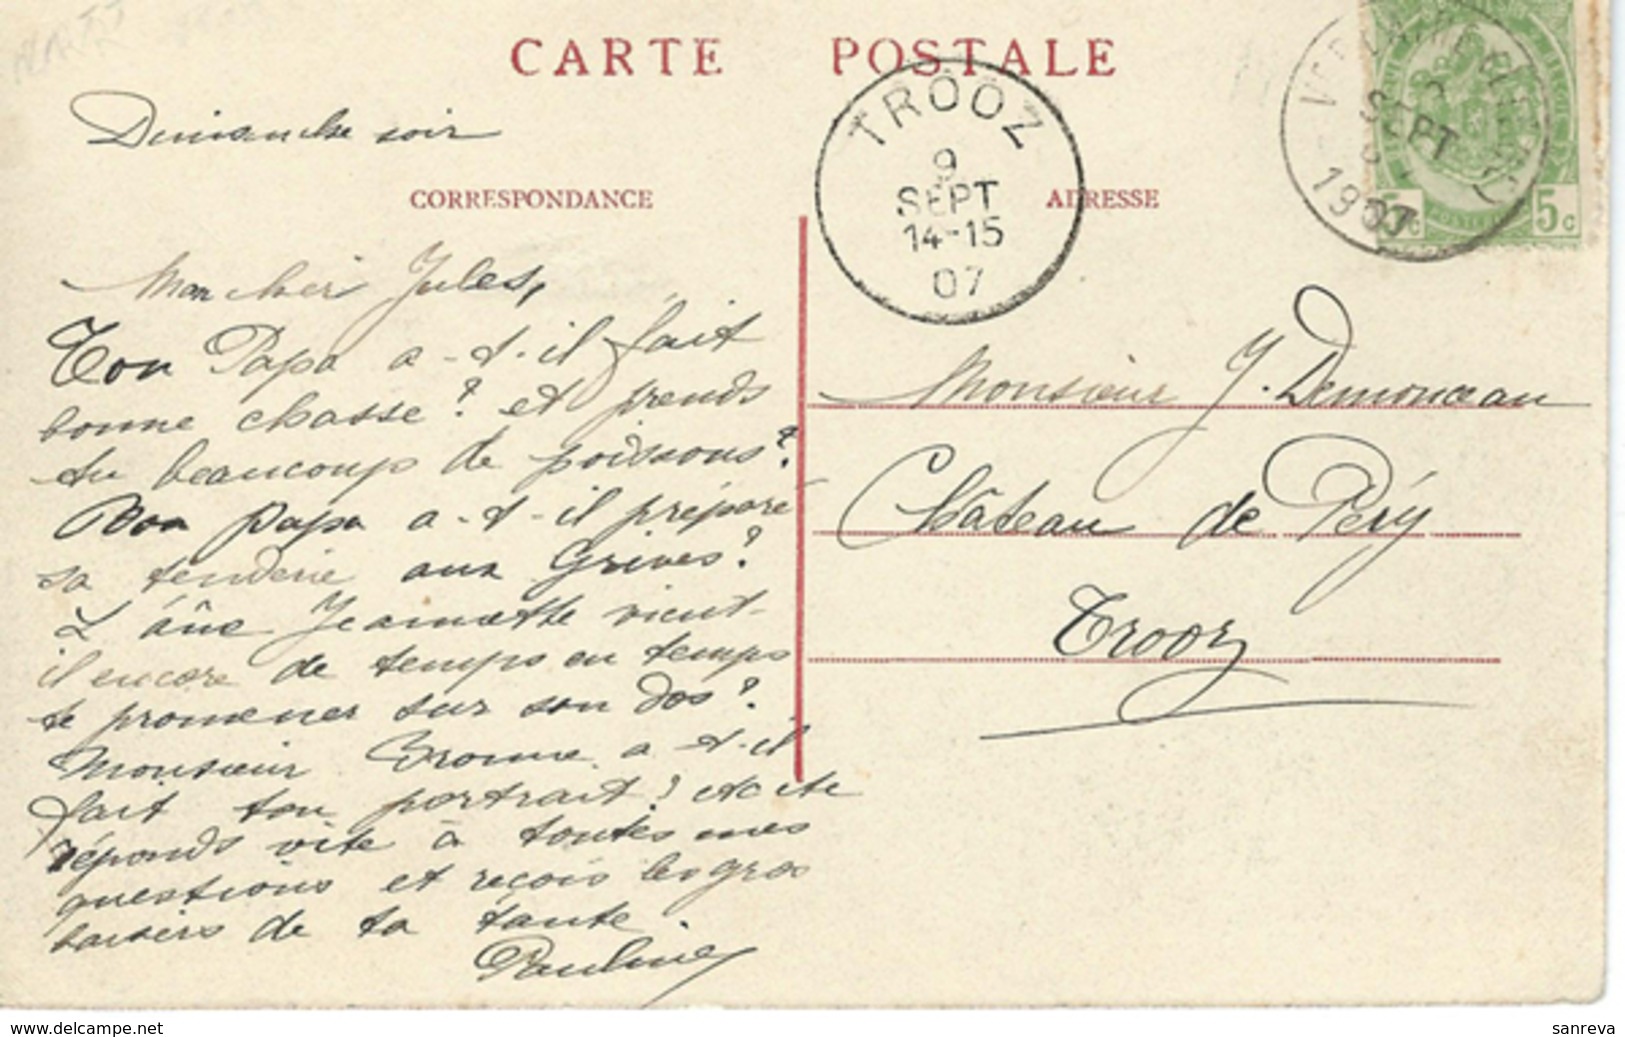 CARTE POSTALE
Dimanche soir
CORRESPONDANCE
ADRESSE
TROOZ
9
SEPT
14-15
07
SEPT
1907
5c
Mon cher Jules,
Ton Papa a-t-il fait
bonne chasse? et prends
tu beaucoup de poissons?
Bon papa a-t-il préparé
sa tenderie aux Grives?
L'âne Jeannette vient-
il encore de temps en temps
te promener sur son dos?
Monsieur a-t-il
fait ton portrait? etc etc
réponds vite à toutes mes
questions et reçois les gros
baisers de ta tante.
Pauline
Monsieur J. Demonceau
Château de Péry
Trooz
www.delcampe.net
sanreva